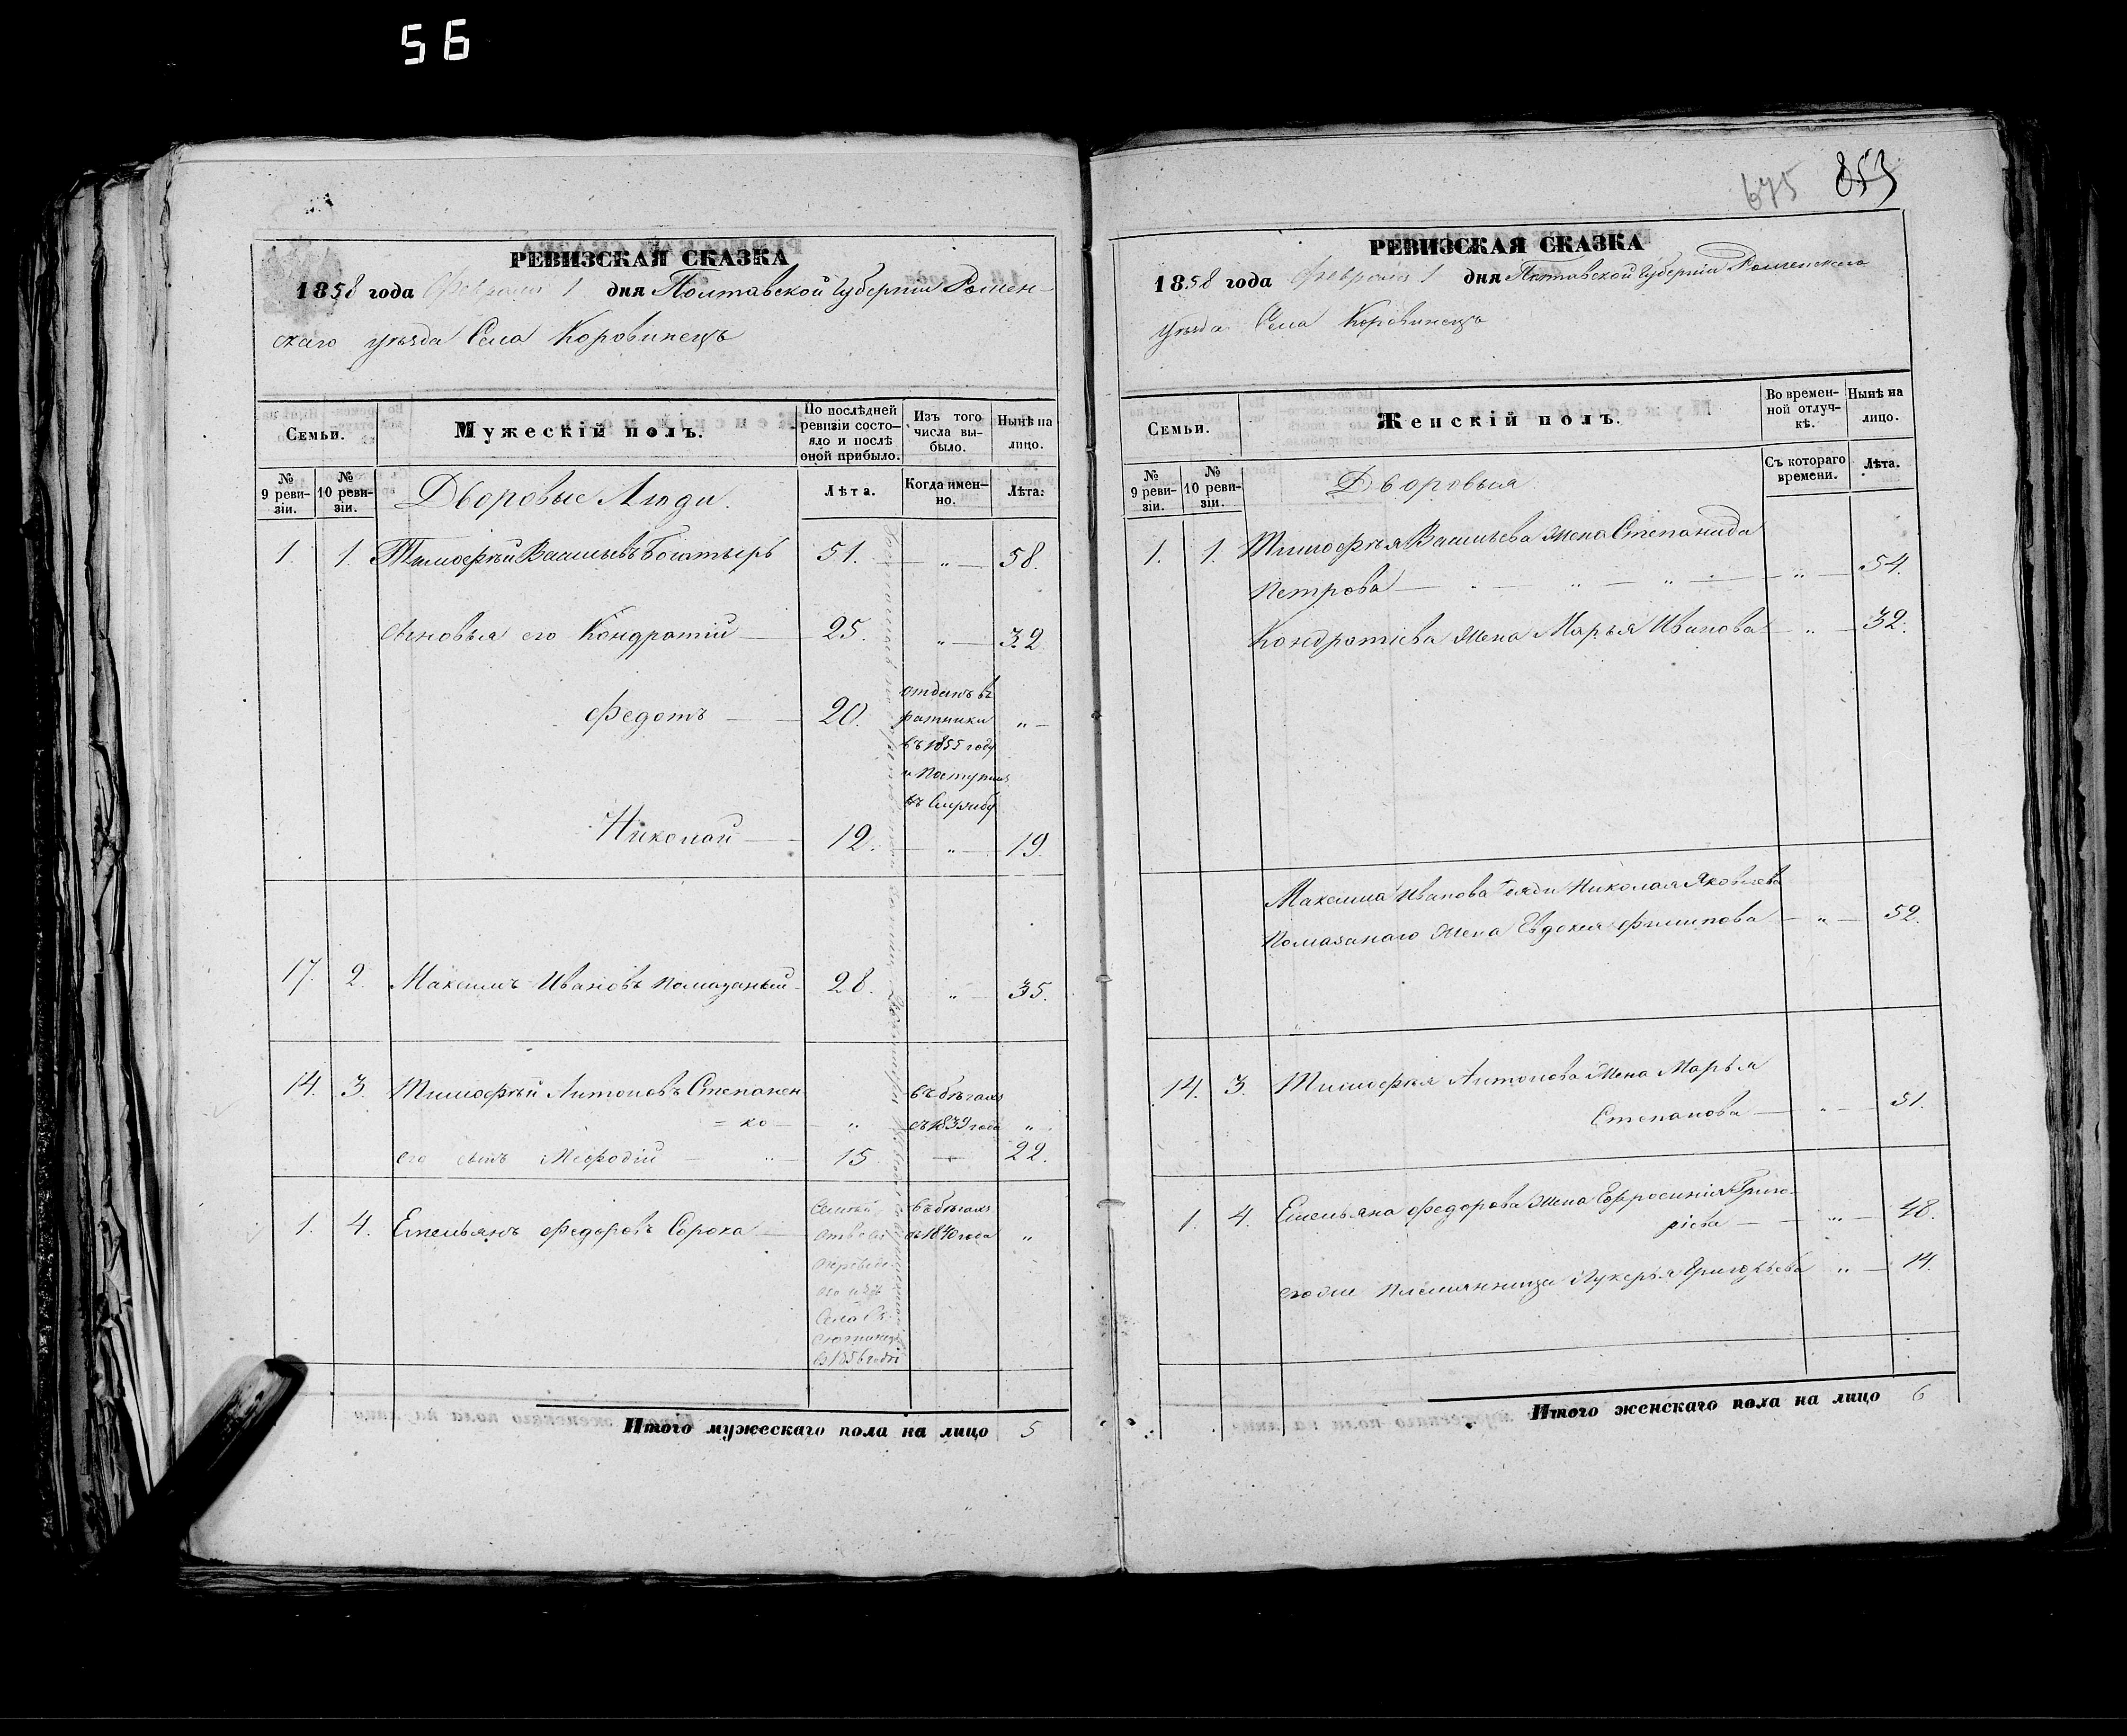 56
РЕВИЗСКАЯ СКАЗКА
1858 года Февраля 1 дня Полтавской Губернии Ромен-
скаго уѣзда Села Коровинецъ
Семьи.
Мужескій полъ.
По послѣдней
ревизіи состо-
яло и послѣ
оной прибыло.
Изъ того
числа вы-
было.
Нынѣ на
лицо.
№
9 реви-
зіи.
№
10 реви-
зіи.
Дворовые Люди.
Лѣта.
Когда имен-
но.
Лѣта.
1. 1. Тимофѣй Васильевъ Богатырь 51. „ 58.
сыновья его Кондратій 25. „ 32
Федотъ 20. „
отданъ въ
ратники
въ 1855 году
и поступилъ
въ Службу
Николай 12. „ 19.
17. 2. Максимъ Ивановъ Помазаный 28. „ 35.
14. 3. Тимофѣй Антоновъ Степанен
= ко „ „
въ бѣгахъ
съ 1839 года
его сынъ Мефодій „ 15 22.
1. 4. Емельянъ Федоровъ Сорока „
въ бѣгахъ
съ 1840 года
Села
Итого мужескаго пола на лицо 5
675 853
РЕВИЗСКАЯ СКАЗКА
1858 года Февраля 1 дня Полтавской Губерніи Роменскаго
уѣзда Села Коровинецъ
Семьи.
Женскій полъ.
Во времен-
ной отлуч-
кѣ.
Нынѣ на
лицо.
№
9 реви-
зіи.
№
10 реви-
зіи.
Дворовыя
Съ котораго
времени.
Лѣта.
1. 1. Тимофѣя Васильева жена Степанида
Петрова „ „ „ 54.
Кондратіева жена Марья Иванова „ 32.
Максима Иванова дяди Николая Яковлева
Помазанаго жена Евдокия Филипова „ 52.
14. 3. Тимофѣя Антонова жена Марья
Степанова „ 51.
1. 4. Емельяна Федорова жена Ефросинія Григо-
ріева „ 48.
его же племянница Лукерья Григорьева „ 14.
Итого женскаго пола на лицо 6